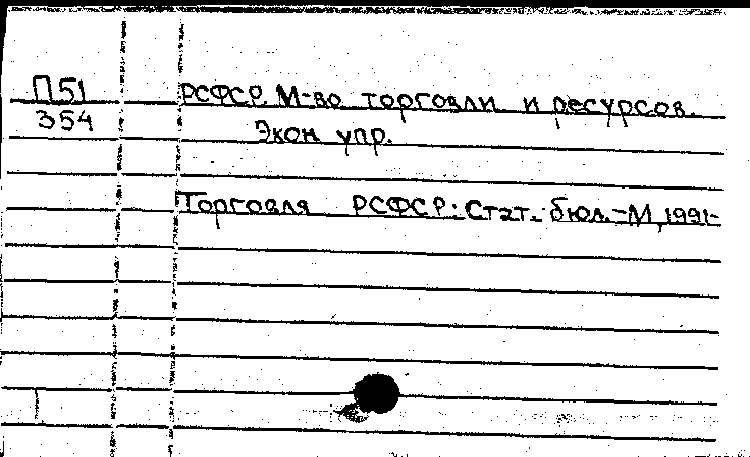 П51
354
РСФСР. М-во торговли и ресурсов.
Экон. упр.
Торговля РСФСР: Стат. бюл. - М, 1991-